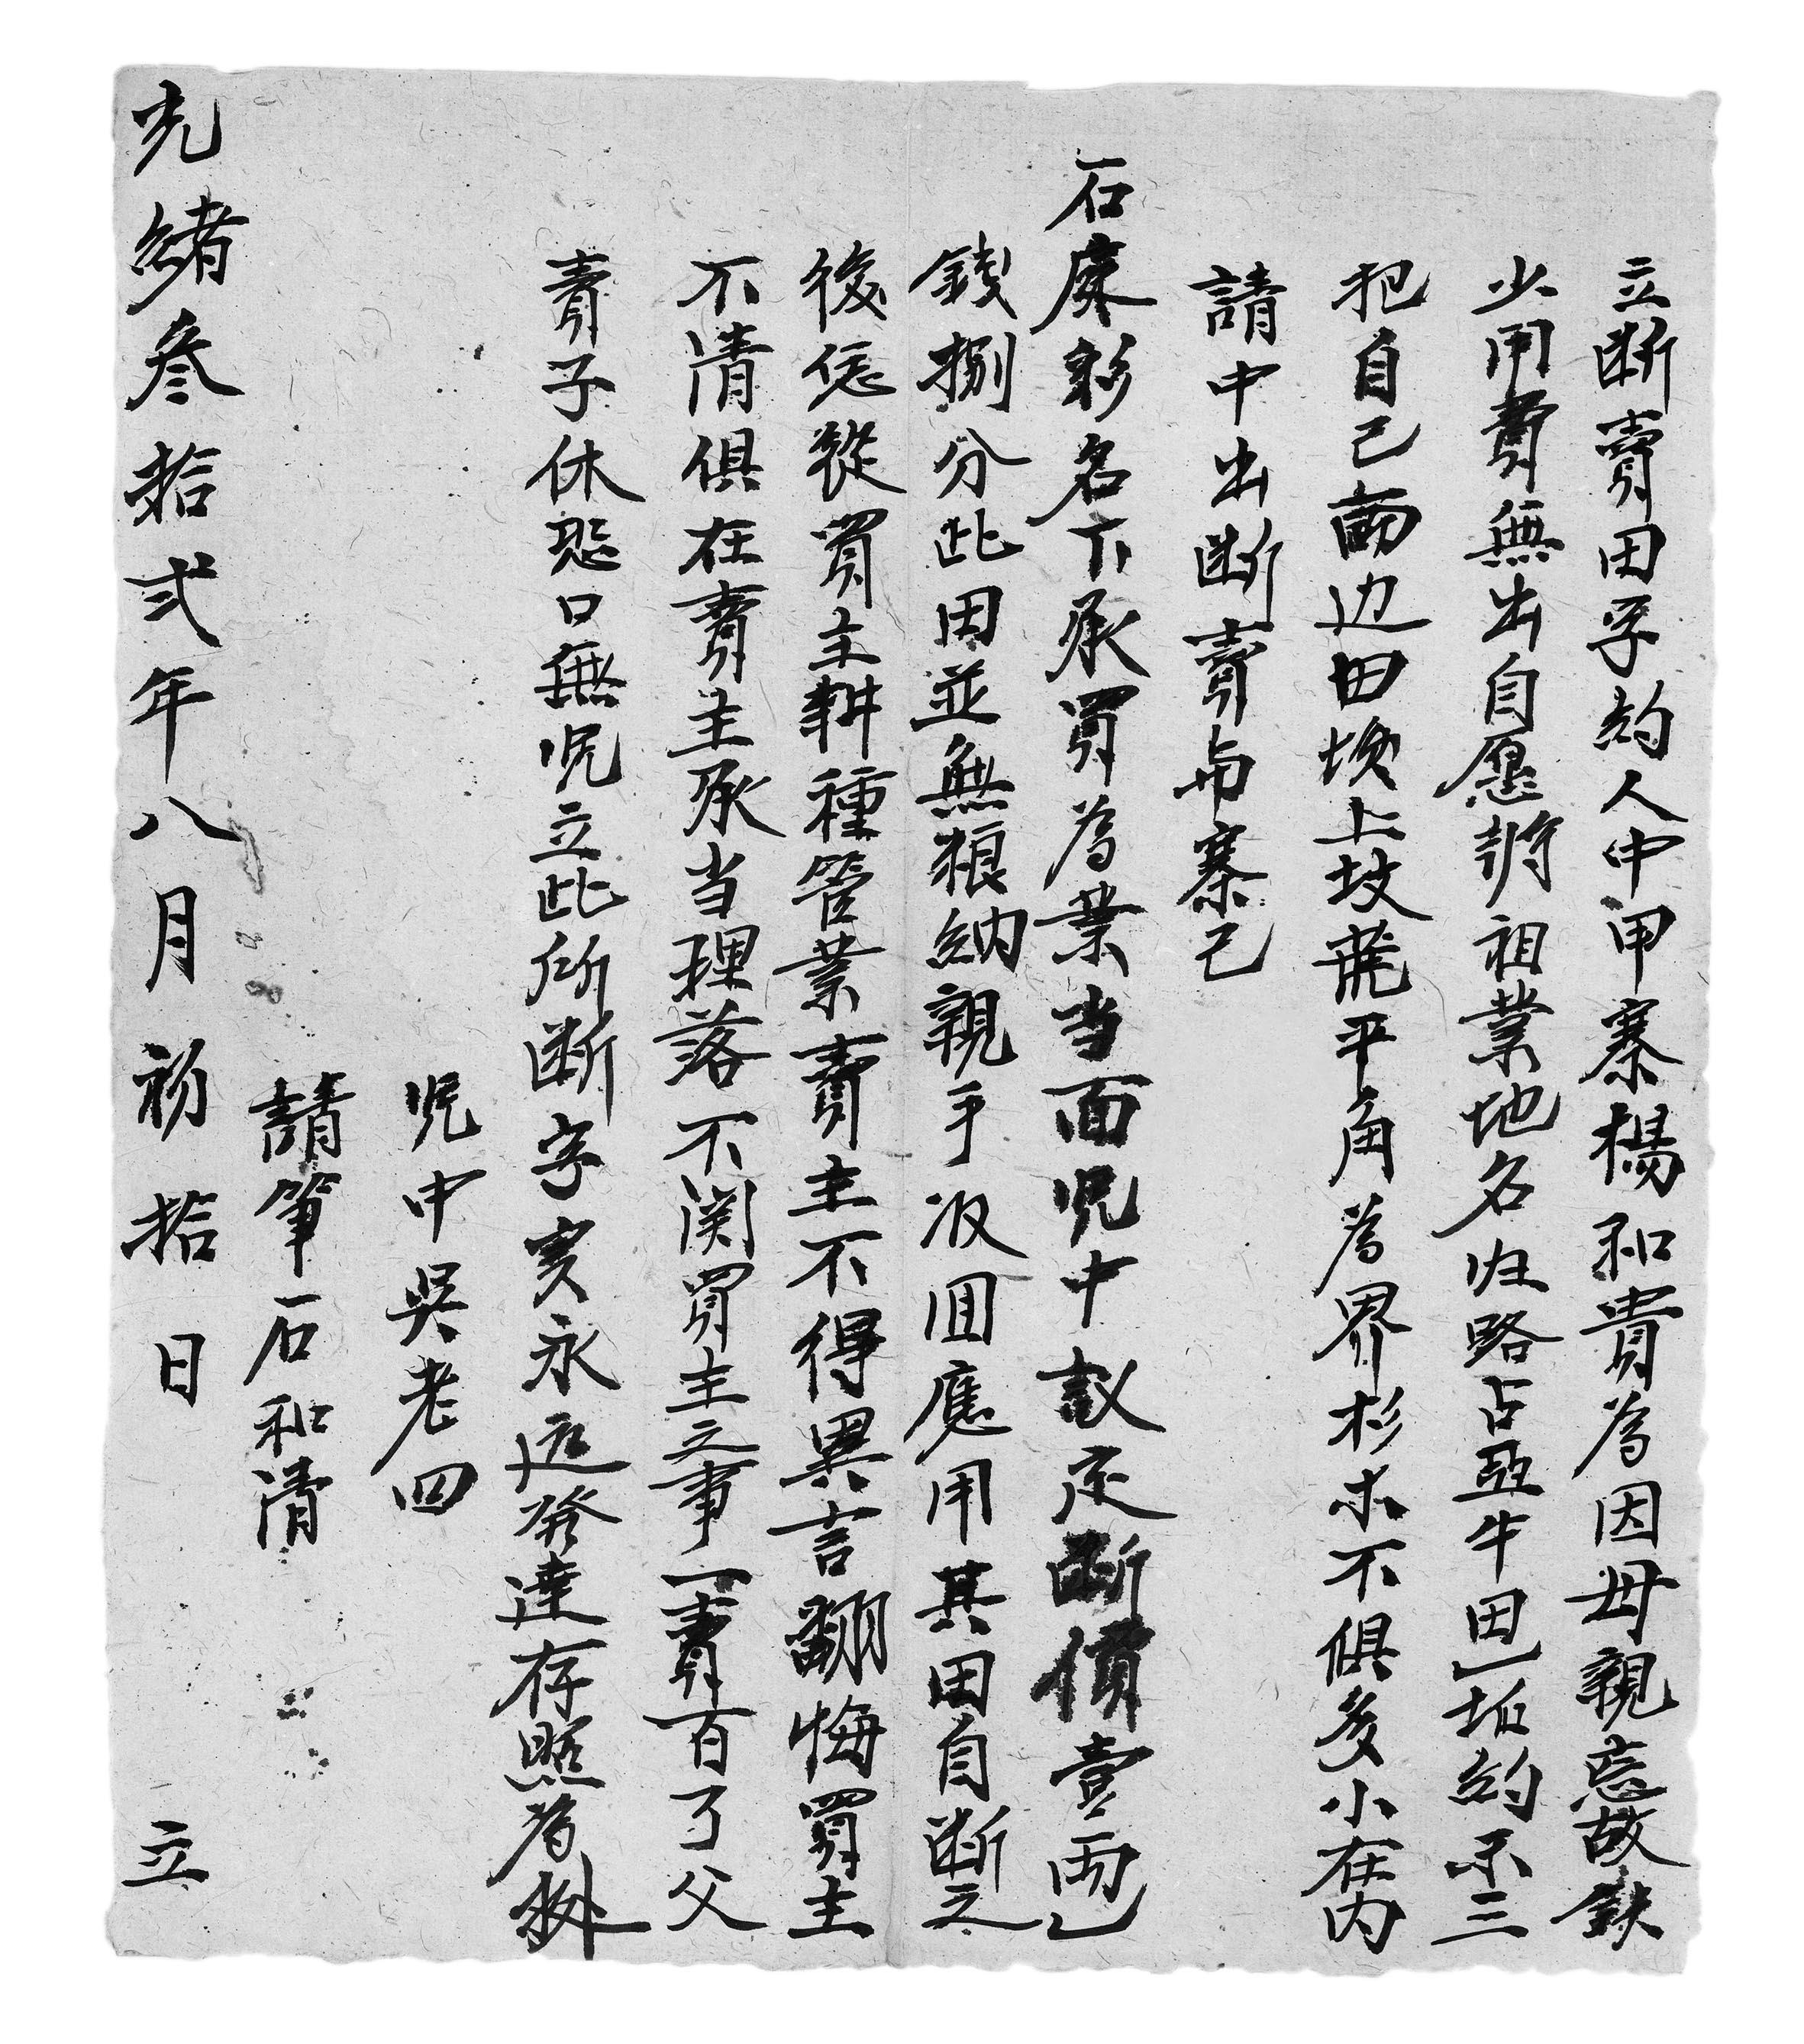 立断賣田字約人中甲寨楊和貴為因母親忘故缺
少用費無出自愿將祖業地名归路占亞牛田一坵約禾三
把自己面边田坎上坡荒平角為界杉木不俱多小在内
請中出断賣与寨己
石庚彩名下承買為業当面凭中議定断價壹兩一
錢捌分此田並無粮納親手収回應用其田自断之
後恁從買主耕種管業賣主不得異言翻悔買主
不清俱在賣主承当理落不関買主之事一賣百了父
賣子休恐口無凭立此所断字寔永遠發達存照為拠
凭中吳老四
請筆石和清
光緒叁拾弍年八月初拾日立